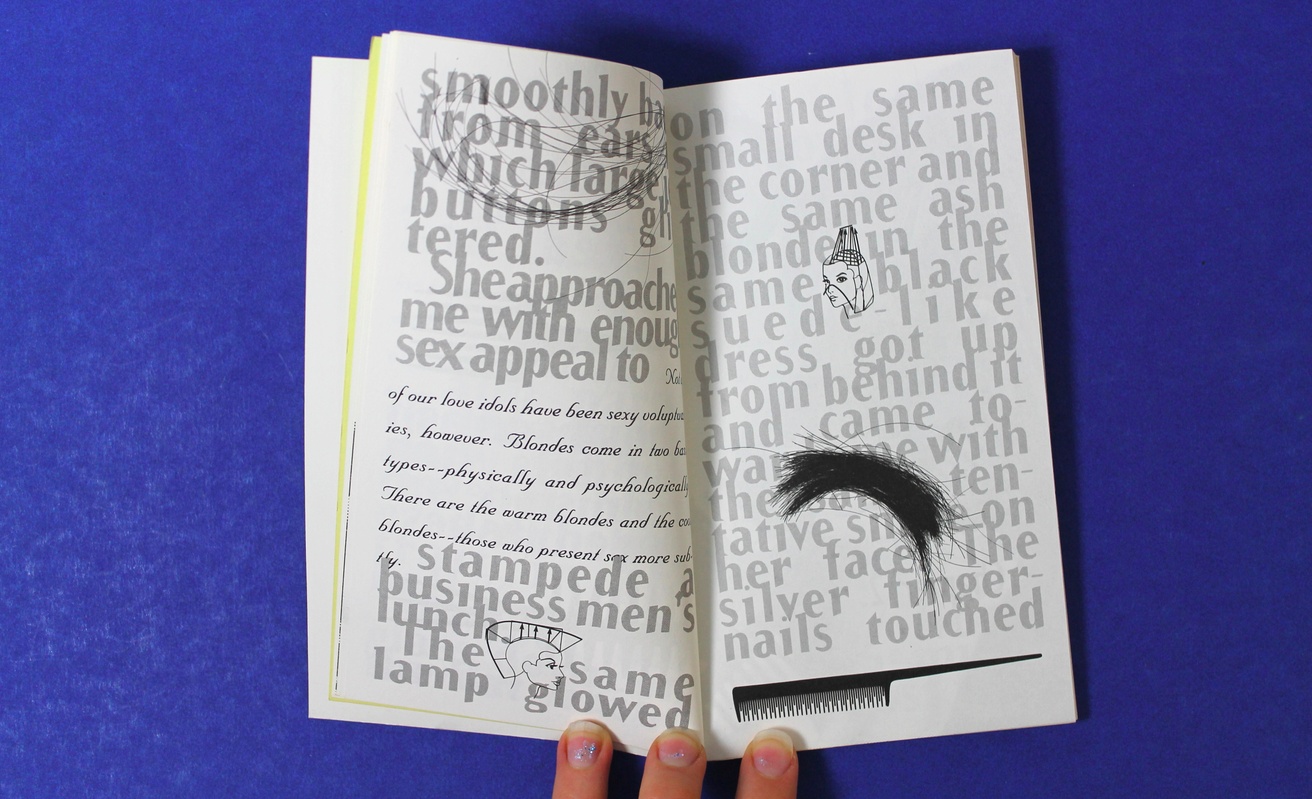 smoothly ba
from ears
which large
buttons gli
tered.
She approache
me with enoug
sex appeal to
of our love idols have been sexy voluptu
ies, however. Blondes come in two ba
types--physically and psychologically
There are the warm blondes and the co
blondes--those who present sex more sub-
tly.
stampede a
business men's
lunch.
The same
lamp glowed
on the same
small desk in
the corner and
the same ash
blonde in the
same black
suede-like
dress got up
from behind it
and came to-
me with
the ten-
tative smile on
her face. The
silver finger-
nails touched